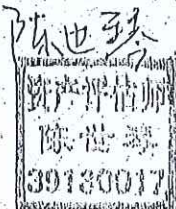 陈世琴
资产评估师
陈世琴
39180017